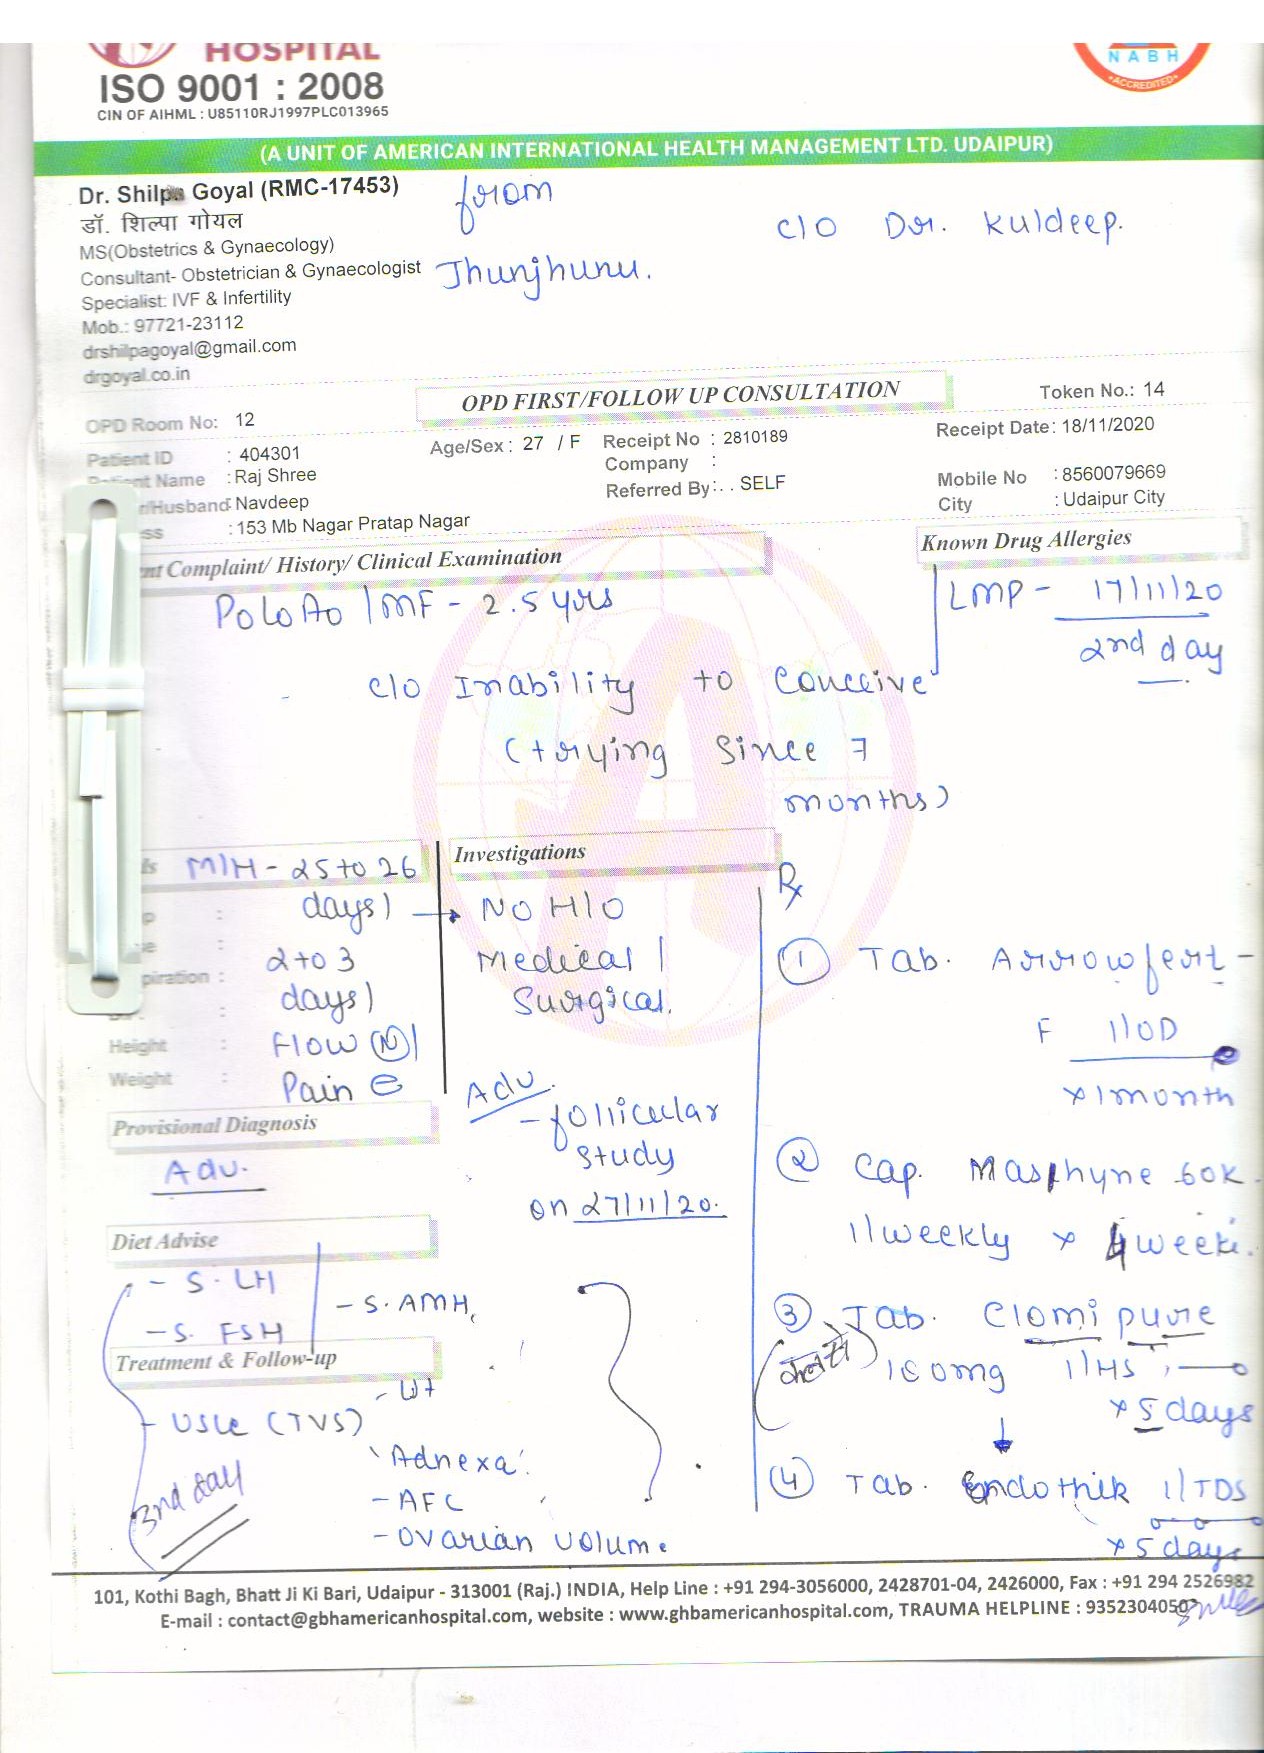 HOSPITAL
ISO 9001 : 2008
CIN OF AIHML : U85110RJ1997PLC013965
NABH
ACCREDITED
(A UNIT OF AMERICAN INTERNATIONAL HEALTH MANAGEMENT LTD. UDAIPUR)
Dr. Shilpa Goyal (RMC-17453)
डॉ. शिल्पा गोयल
MS(Obstetrics & Gynaecology)
Consultant- Obstetrician & Gynaecologist
Specialist: IVF & Infertility
Mob.: 97721-23112
drshilpagoyal@gmail.com
drgoyal.co.in
from
Jhunjhunu.
c/o Dr. Kuldeep.
OPD FIRST/FOLLOW UP CONSULTATION
Token No.: 14
OPD Room No: 12
Patient ID : 404301
Age/Sex : 27 / F
Receipt No : 2810189
Receipt Date: 18/11/2020
Company :
Name : Raj Shree
Referred By: . . SELF
Mobile No : 8560079669
/Husband: Navdeep
City : Udaipur City
ss : 153 Mb Nagar Pratap Nagar
nt Complaint/ History/ Clinical Examination
Known Drug Allergies
P0L0A0 / MF - 2.5 yrs
LMP - 17/11/20
2nd day
c/o Inability to Conceive
(trying Since 7
months)
ls
M/H - 25 to 26
days)
2 to 3
days)
Flow (N)
Pain
p :
e :
piration :
:
Height :
Weight :
Investigations
NO H/O
Medical /
Surgical.
Adv.
- follicular
study
on 27/11/20.
Provisional Diagnosis
Adv.
Diet Advise
- S. LH
- S. FSH
- S. AMH,
Treatment & Follow-up
- Ut
- (TVS)
Adnexa
- AFC
- Ovarian volume
3rd day
Rx
① Tab. Arrowfert -
F 1/OD
x 1 month
② Cap. Masphyne 60K
1/weekly x 4 week
③ Tab. Clomipure
100mg 1/HS
x 5 days
④ Tab. Endothik 1/TDS
x 5 days
101, Kothi Bagh, Bhatt Ji Ki Bari, Udaipur - 313001 (Raj.) INDIA, Help Line : +91 294-3056000, 2428701-04, 2426000, Fax : +91 294 2526982
E-mail : contact@gbhamericanhospital.com, website : www.ghbamericanhospital.com, TRAUMA HELPLINE : 9352304050